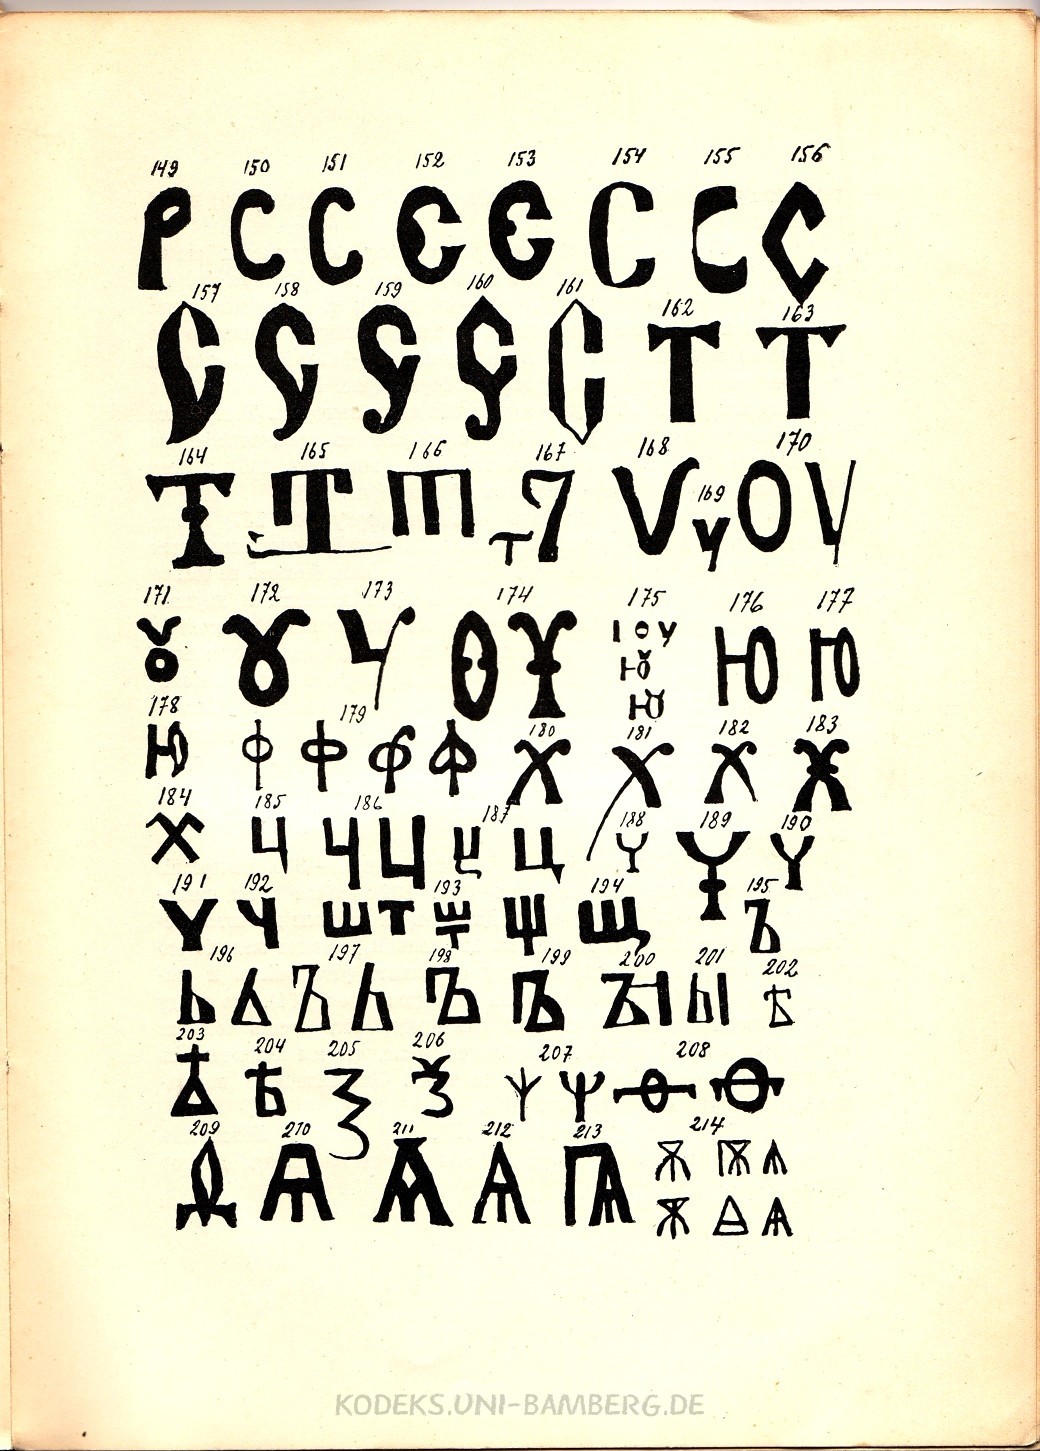 149 150 151 152 153 154 155 156
Р С С Є Є С С С
157 158 159 160 161 162 163
С С С С С Т Т
164 165 166 167 168 169 170
Т Т Т Т 7 Ѵ у ОѴ
171 172 173 174 175 176 177
Ȣ Ȣ Ч Ѻ Ү ІОУ Ю Ю Ю Ю
178 179 180 181 182 183
Ю Ф Ф Ф Ф Х Х Х Ж
184 185 186 187 188 189 190
Х Ц Ч Ц Ц Ц Ч Ч Ч
191 192 193 194 195
Ч Ч Ш Т Щ Щ Щ Ъ
196 197 198 199 200 201 202
Ь Ь Ъ Ь Ъ Ъ ЪІ ЬІ Ѣ
203 204 205 206 207 208
Ѣ Ѣ Ѯ Ѯ Ѱ Ѱ Ѳ Ѳ
209 210 211 212 213 214
Ѧ Ѧ Ѧ Ѧ Ѩ Ѫ Ѭ Ѧ
Ѫ Ѧ Ѧ
KODEKS.UNI-BAMBERG.DE